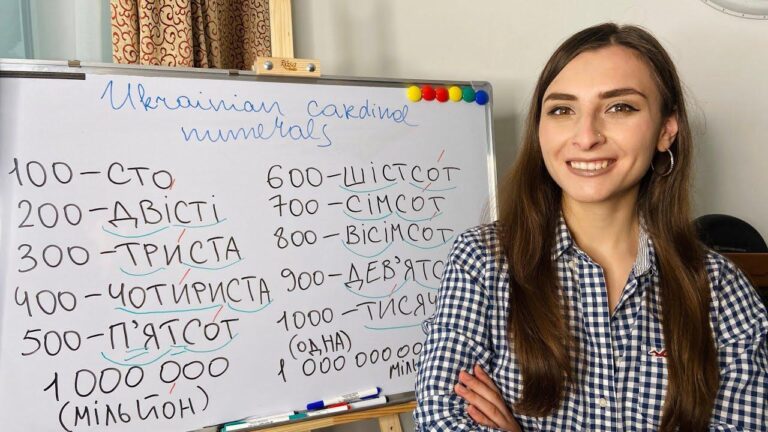 Ukrainian cardinal
numerals
100-СТО
200-ДВІСТІ
300-ТРИСТА
400-ЧОТИРИСТА
500-П'ЯТСОТ
1 000 000
(МІЛЬЙОН)
600-ШІСТСОТ
700-СІМСОТ
800-ВІСІМСОТ
900-
1000-
(ОДНА)